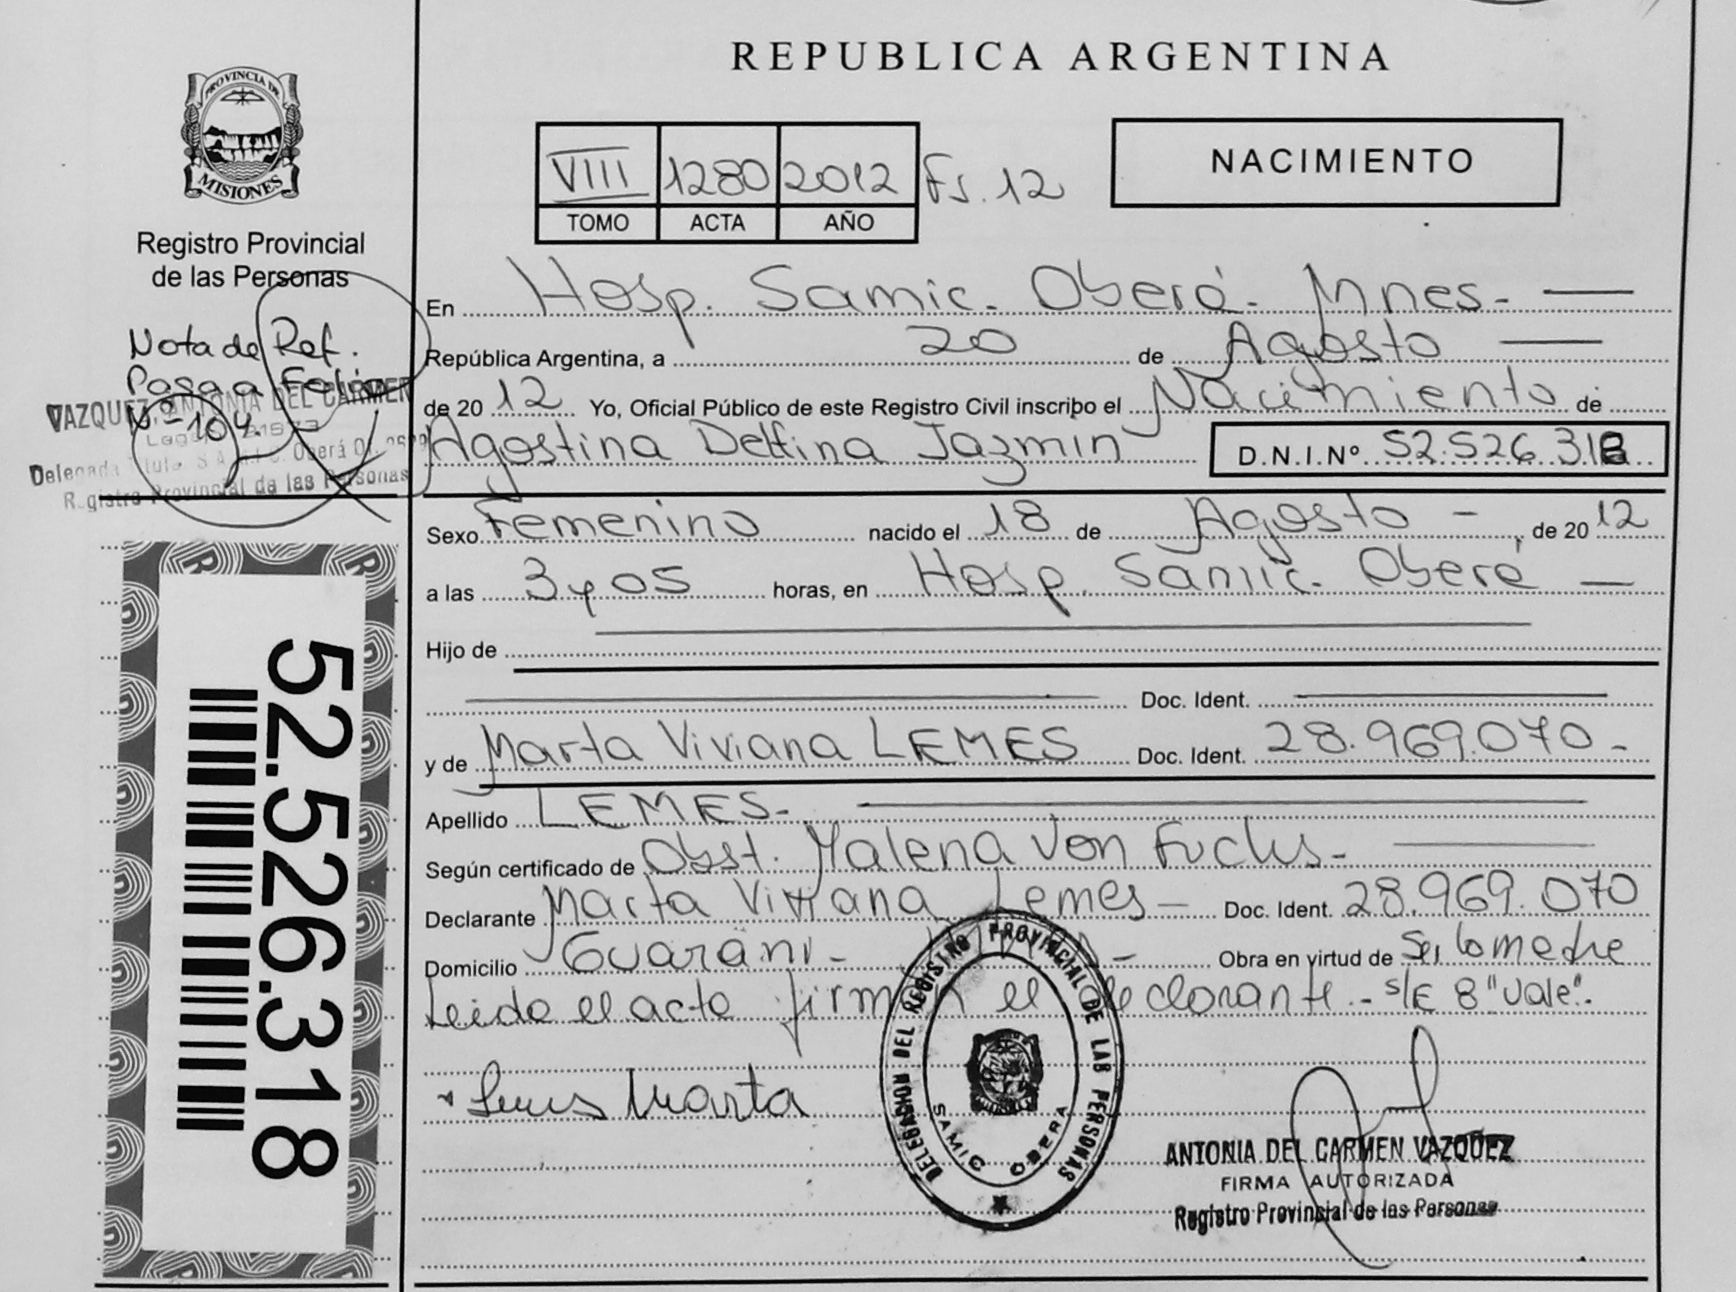 REPUBLICA ARGENTINA
PROVINCIA DE
MISIONES
Registro Provincial
de las Personas
VIII 1280 2012 Fs. 12
TOMO ACTA AÑO
NACIMIENTO
Nota de Ref.
Pasa a Folio
Nº 104.
VAZQUEZ, ANTONIA DEL CARMEN
Delegada Titular S.A.M.I.C. Oberá
Registro Provincial de las Personas
En Hosp. Samic. Oberá. Mnes.
República Argentina, a 20 de Agosto
de 2012 Yo, Oficial Público de este Registro Civil inscribo el Nacimiento de
Agostina Delfina Jazmin D.N.I.Nº 52.526.318
Sexo Femenino nacido el 18 de Agosto - , de 2012
a las 3 y 05 horas, en Hosp. Samic. Oberá
Hijo de
Doc. Ident.
y de Marta Viviana LEMES Doc. Ident. 28.969.070.-
Apellido LEMES.-
Según certificado de Obst. Malena Von Fuchs.-
Declarante Marta Viviana Lemes - Doc. Ident. 28.969.070
Domicilio Guaraní - Obra en virtud de Ser la madre
Leida el acta firma el declarante.- S/E 8 "Vale".
Lemes Marta
DELEGACION DEL REGISTRO PROVINCIAL DE LAS PERSONAS
SAMIC OBERA
ANTONIA DEL CARMEN VAZQUEZ
FIRMA AUTORIZADA
Registro Provincial de las Personas
52.526.318